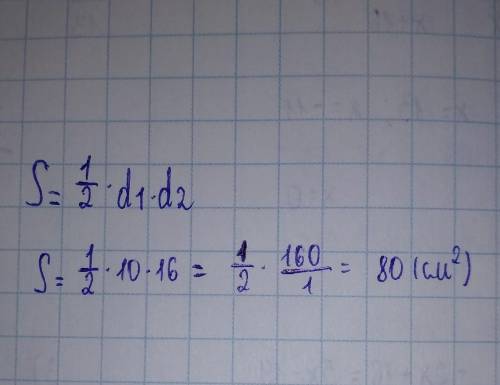 S = 1/2 · d1 · d2
S = 1/2 · 10 · 16 = 1/2 · 160/1 = 80 (см²)